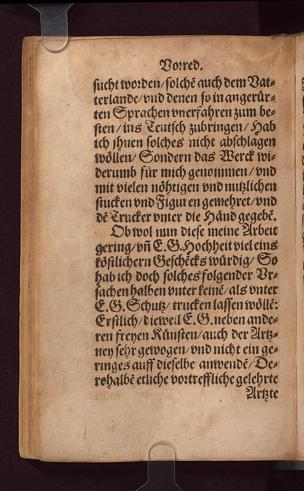 Vorred.
sucht worden/ solchẽ auch dem Vat⸗
terlande/ vnd denen so in angerür⸗
ten Sprachen vnerfahren zum be⸗
sten/ ins Teutsch zubringen/ Hab
ich jhnen solches nicht abschlagen
wöllen/ Sondern das Werck wi⸗
derumb für mich genommen/ vnd
mit vielen nöhtigen vnd nutzlichen
stucken vnd Figuren gemehret/ vnd
dẽ Trucker vnter die Händ gegebẽ.
Ob wol nun diese meine Arbeit
gering/ vñ E. G. Hochheit viel eins
köstlichern Geschẽcks würdig/ So
hab ich doch solches folgender Vr⸗
sachen halben vnter keinẽ/ als vnter
E. G. Schutz/ trucken lassen wöllẽ:
Erstlich/ dieweil E. G. neben ande⸗
ren freyen Künsten/ auch der Artz⸗
ney sehr gewogen/ vnd nicht ein ge⸗
ringes auff dieselbe anwendẽ/ De⸗
rohalbẽ etliche vortreffliche gelehrte
Artzte